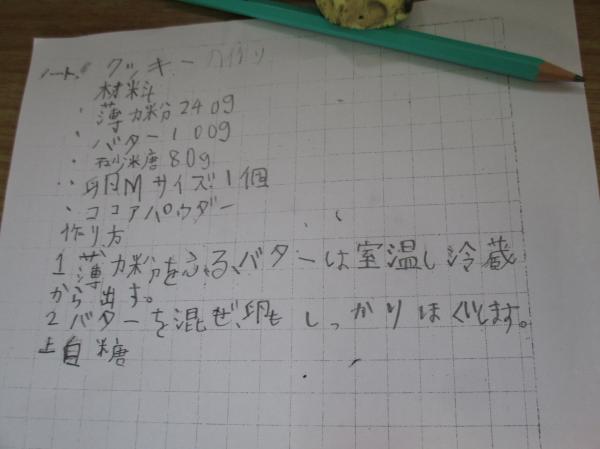 ノート クッキー の作り
材料
・薄力粉240g
・バター100g
・砂糖80g
・卵Mサイズ1個
・ココアパウダー
作り方
1 薄力粉をふる、バターは室温し冷蔵
から出す。
2 バターを混ぜ、卵も しっかりほぐします。
上白糖